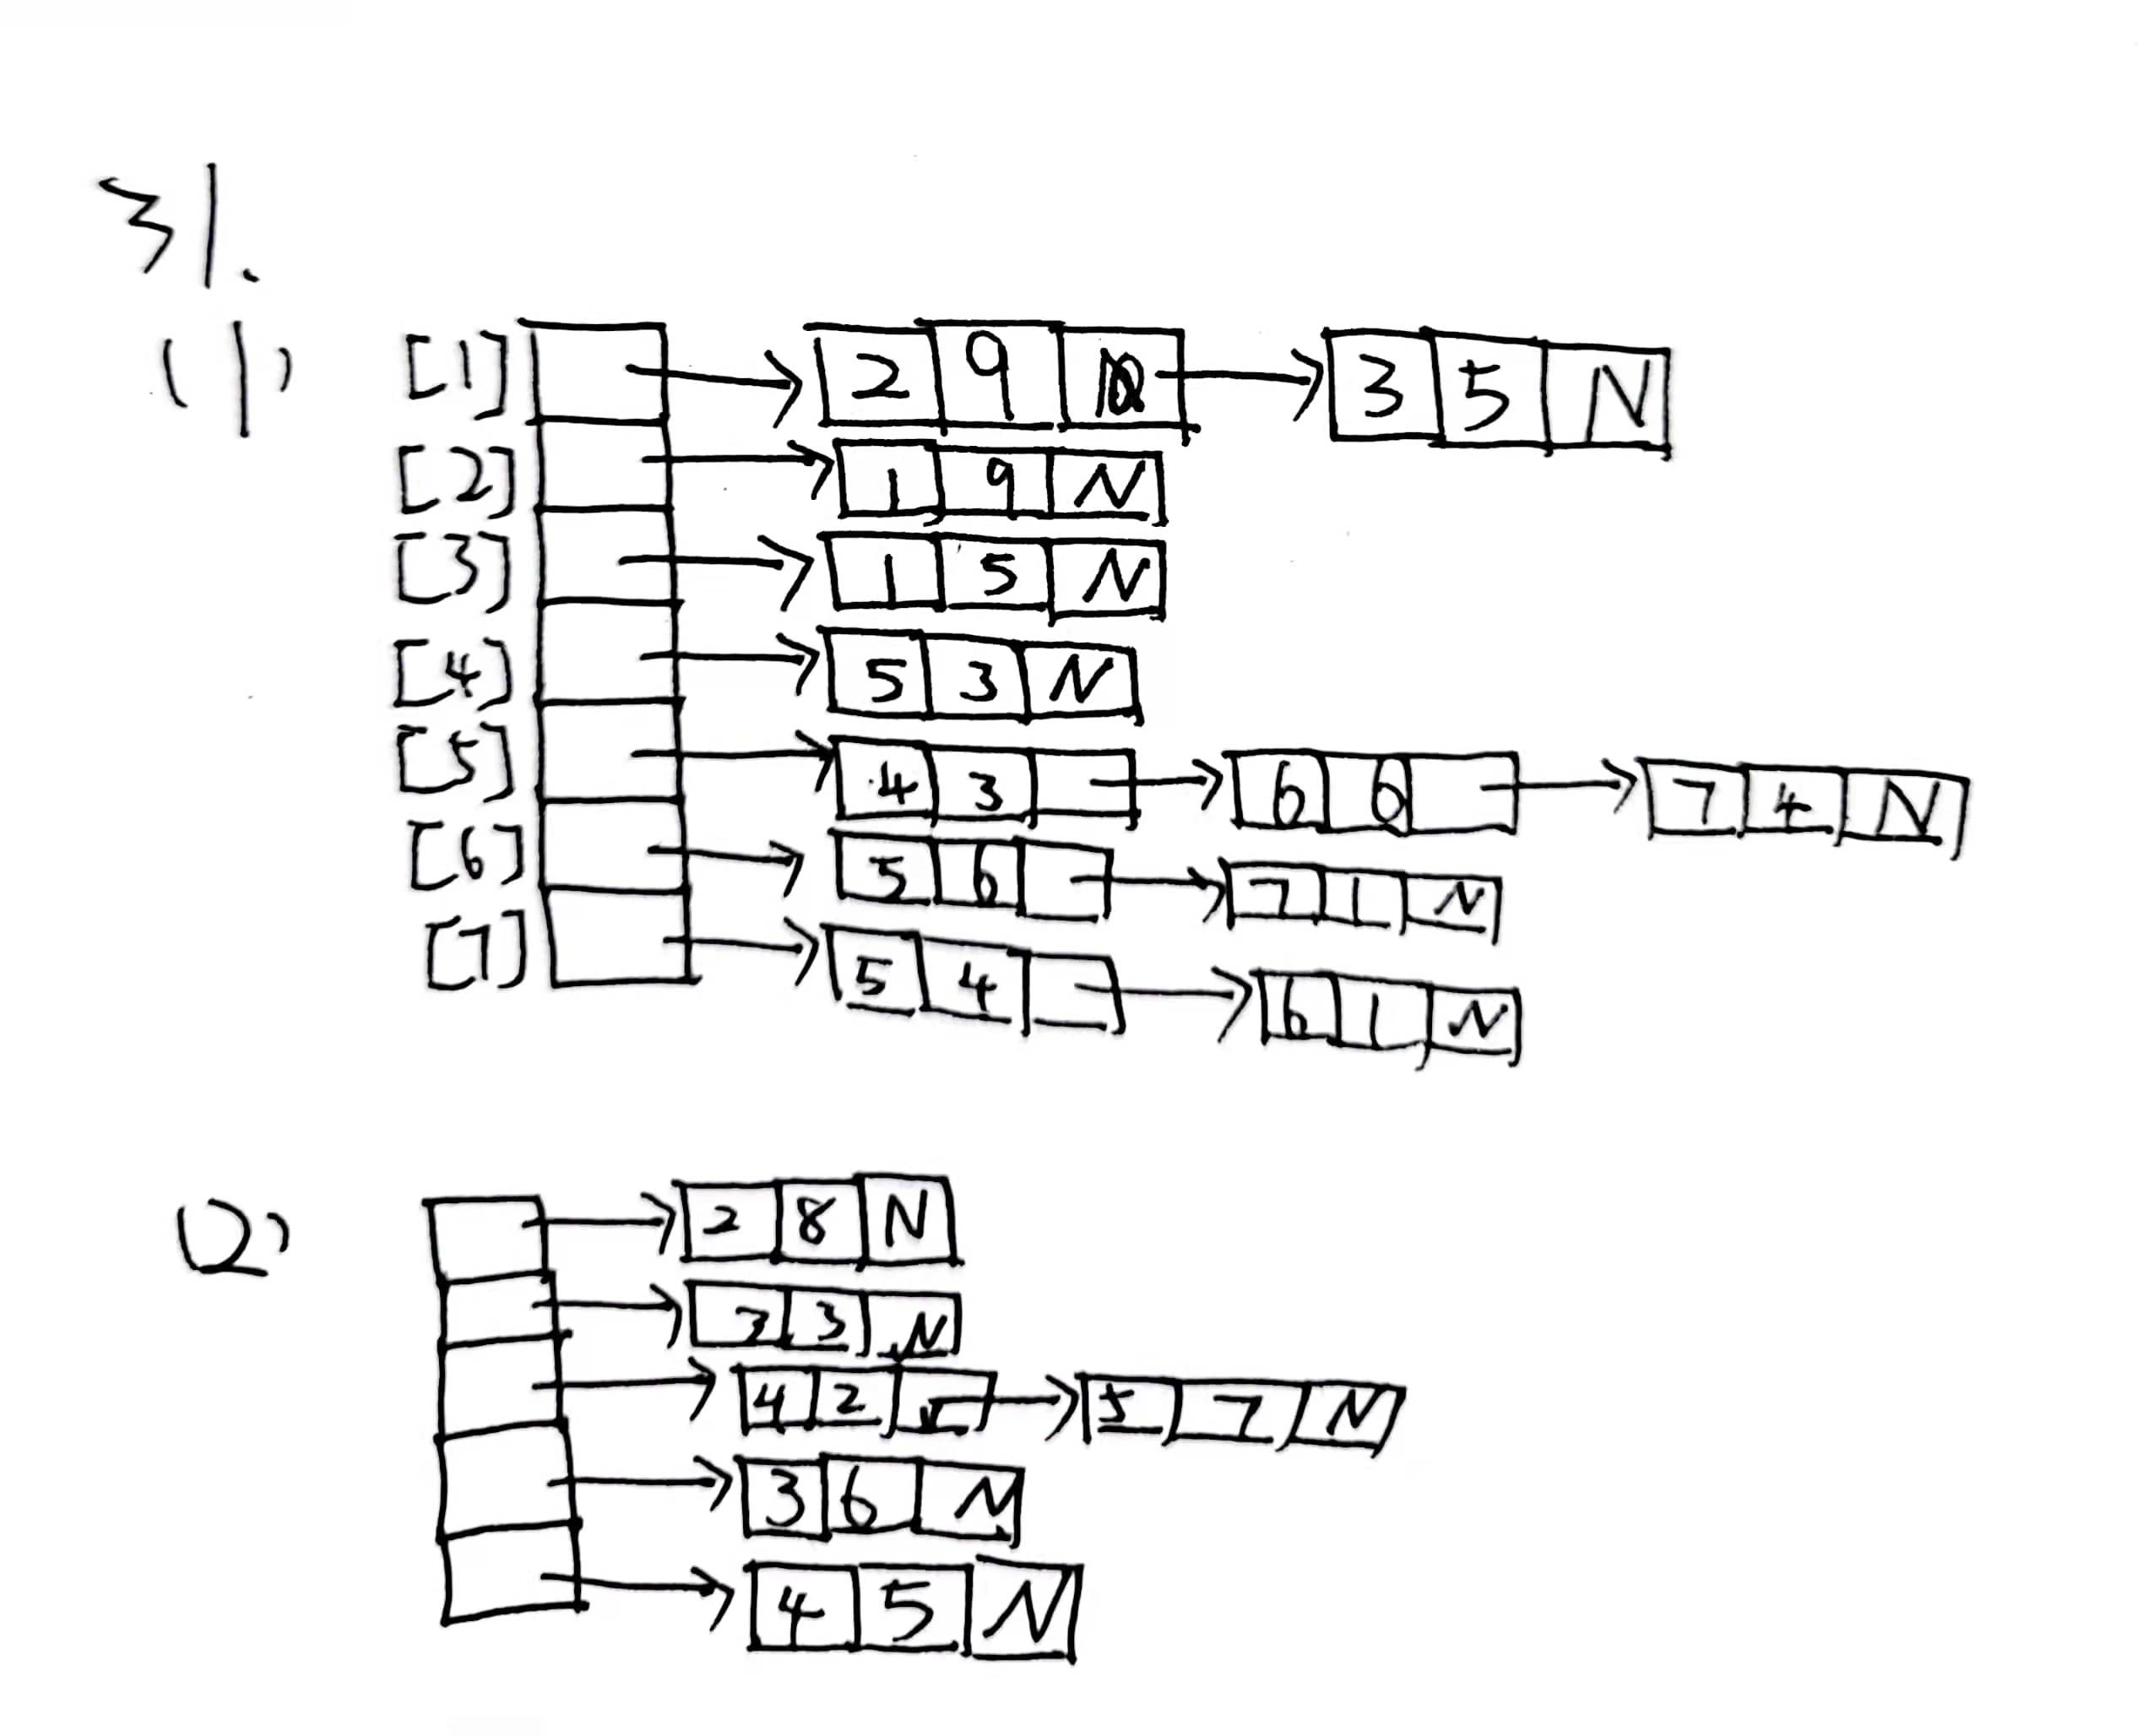 31.
(1) [1] 2 9 3 5 N
[2] 1 9 N
[3] 1 5 N
[4] 5 3 N
[5] 4 3 6 6 7 4 N
[6] 5 6 7 1 N
[7] 5 4 6 1 N
(2) 2 8 N
3 3 N
4 2 5 7 N
3 6 N
4 5 N